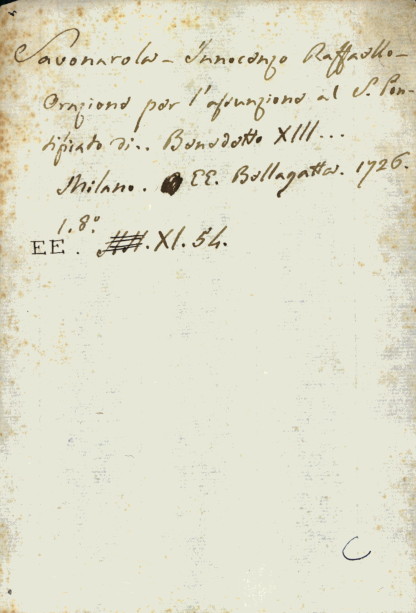 Savonarola - Innocenzo Raffaello -
Orazione per l'assunzione al S. Pon-
tificato di.. Benedetto XIII...
Milano. EE. Bellagatta. 1726.
1. 8.º
EE. .XI. 54.